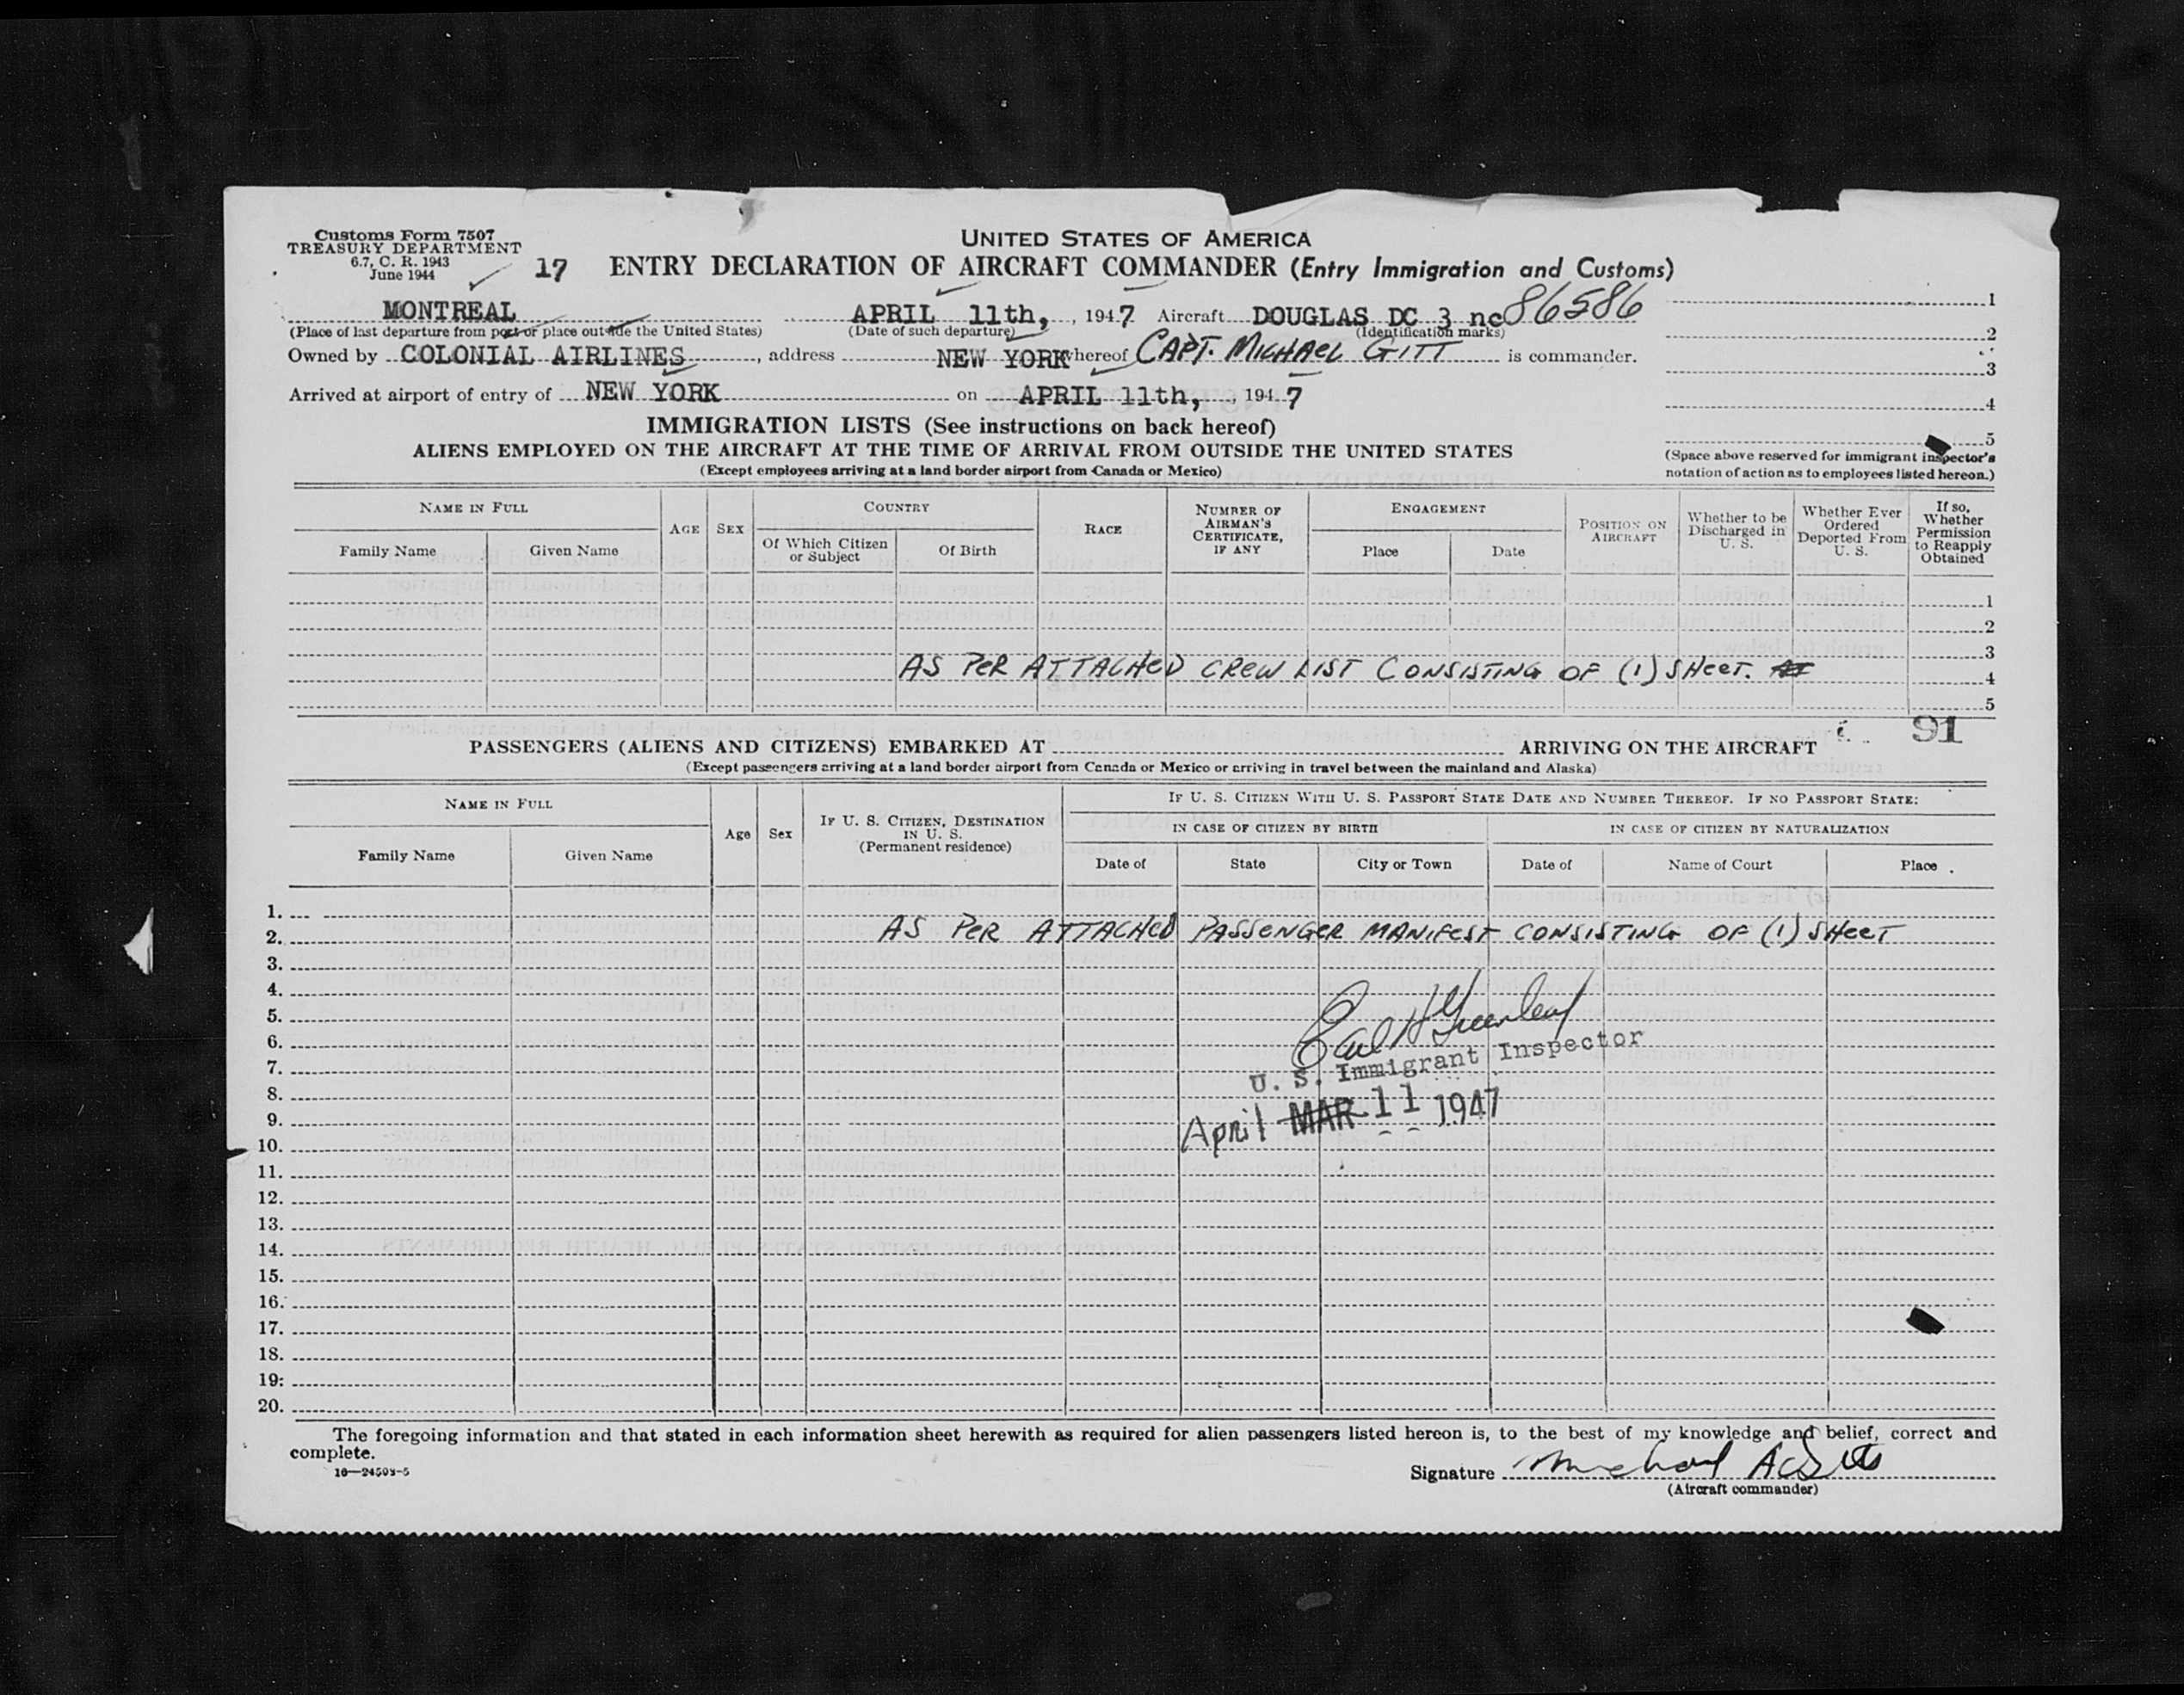 Customs Form 7507
TREASURY DEPARTMENT
6.7, C. R. 1943
June 1944
17
UNITED STATES OF AMERICA
ENTRY DECLARATION OF AIRCRAFT COMMANDER (Entry Immigration and Customs)
MONTREAL APRIL 11th, , 1947 Aircraft DOUGLAS DC 3 nc 86586
(Place of last departure from port or place outside the United States) (Date of such departure) (Identification marks)
Owned by COLONIAL AIRLINES, address NEW YORK whereof CAPT. MICHAEL GITT is commander.
Arrived at airport of entry of NEW YORK on APRIL 11th, , 1947
1
2
3
4
5
(Space above reserved for immigrant inspector's
notation of action as to employees listed hereon.)
IMMIGRATION LISTS (See instructions on back hereof)
ALIENS EMPLOYED ON THE AIRCRAFT AT THE TIME OF ARRIVAL FROM OUTSIDE THE UNITED STATES
(Except employees arriving at a land border airport from Canada or Mexico)
NAME IN FULL
Family Name Given Name
AGE SEX
COUNTRY
Of Which Citizen
or Subject
Of Birth
RACE
NUMBER OF
AIRMAN'S
CERTIFICATE,
IF ANY
ENGAGEMENT
Place Date
POSITION ON
AIRCRAFT
Whether to be
Discharged in
U. S.
Whether Ever
Ordered
Deported From
U. S.
If so,
Whether
Permission
to Reapply
Obtained
1
2
3
AS PER ATTACHED CREW LIST CONSISTING OF (1) SHEET.
4
5
91
PASSENGERS (ALIENS AND CITIZENS) EMBARKED AT ARRIVING ON THE AIRCRAFT
(Except passengers arriving at a land border airport from Canada or Mexico or arriving in travel between the mainland and Alaska)
NAME IN FULL
Family Name Given Name
Age Sex
IF U. S. CITIZEN, DESTINATION
IN U. S.
(Permanent residence)
IF U. S. CITIZEN WITH U. S. PASSPORT STATE DATE AND NUMBER THEREOF. IF NO PASSPORT STATE:
IN CASE OF CITIZEN BY BIRTH IN CASE OF CITIZEN BY NATURALIZATION
Date of State City or Town Date of Name of Court Place
1.
2. AS PER ATTACHED PASSENGER MANIFEST CONSISTING OF (1) SHEET
3.
4.
5.
Earl H Greenleaf
6.
7.
U. S. Immigrant Inspector
8.
9.
April MAR 11 1947
10.
11.
12.
13.
14.
15.
16.
17.
18.
19.
20.
The foregoing information and that stated in each information sheet herewith as required for alien passengers listed hereon is, to the best of my knowledge and belief, correct and
complete.
16—24503-5
Signature Michael A Gitt
(Aircraft commander)